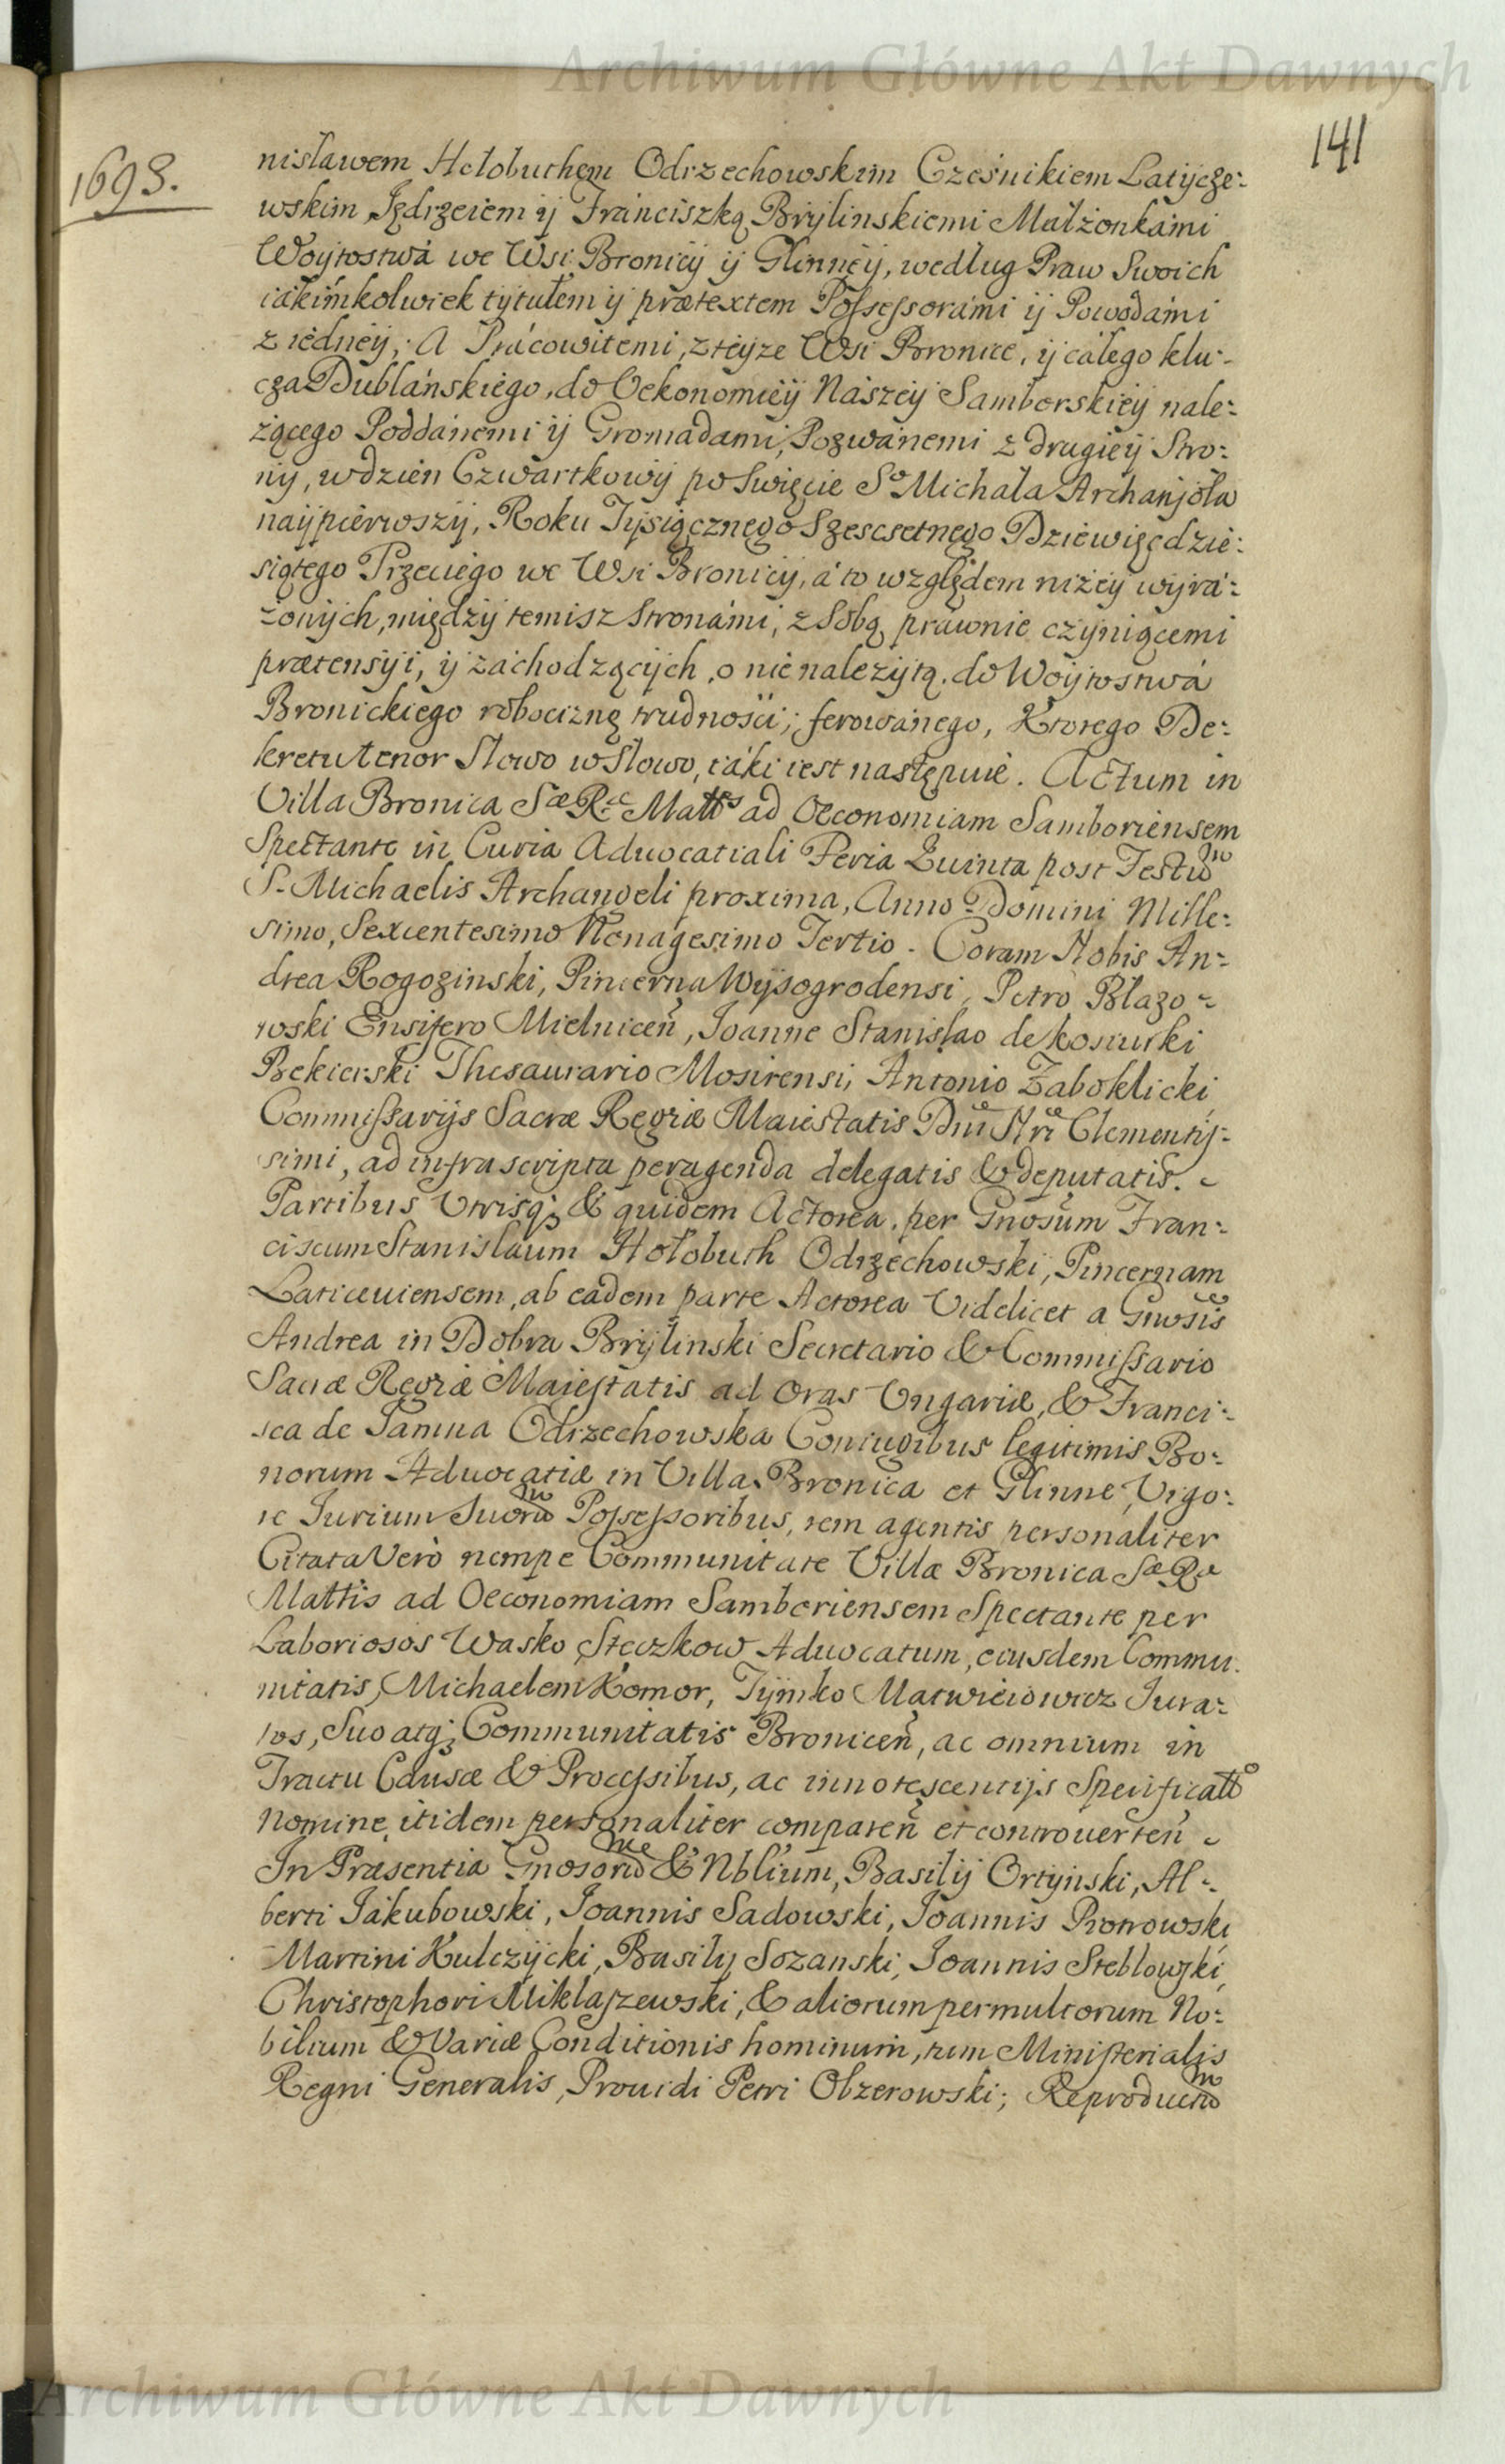 Archiwum Główne Akt Dawnych
141
1693.
nisławem Hołobuthem Odrzechowskim Cześnikiem Latycze:
wskim Jędrzeiem ij Franciszką Brÿlinskiemi Małżonkámi
Woÿtostwá we Wsi Bronicÿ ij Glinneÿ, według Praw Swoich
iákimkolwiek tÿtułem ij prætextem Possessorámi ij Powodámi
z iedneÿ; A Prácowitemi, zteÿze Wsi Bronice, ij całego klu:
cza Dublánskiego, do Oekonomieÿ Nászeÿ Samborskieÿ nale:
żącego Poddánemi ij Gromadami, Pozwánemi z drugieÿ Stro:
nÿ, wdzien Czwartkowÿ po Swięcie Sº Michała Archanjoła
naÿpierwszÿ, Roku Tÿsiącznego Szescsetnego Dziewięcdzie:
siątego Trzeciego we Wsi Bronicÿ, á to względem niżeÿ wÿrá:
żonÿch, międzÿ temisz Stronámi, z Sobą prawnie czÿniącemi
prætensÿi, ij záchodzącÿch, o nie należÿtą, do Woÿtostwá
Bronickiego robociznę trudności; ferowánego, Ktorego De:
kretu tenor Słowo w Słowo, táki iest następuie. Actum in
Villa Bronica Sæ Ræ Mattis ad Oeconomiam Samboriensem
Spectante in Curia Aduocatiali Feria Quinta post Festum
S. Michaelis Archangeli proxima, Anno Domini Mille:
simo, Sexcentesimo Nonagesimo Tertio. Coram Nobis An:
drea Rogozinski, Pincerna Wÿsogrodensi, Petro Błazo:
wski Ensifero Mielnicen, Joanne Stanislao de Kosciurki
Bekierski Thesaurario Mosirensi, Antonio Zaboklicki
Commissarijs Sacræ Regiæ Maiestatis Dni Nri Clementis:
simi, ad infra scripta peragenda delegatis & deputatis.
Partibus Vtrisq; & quidem Actorea, per Gnosum Fran:
ciscum Stanislaum Hołobuth Odrzechowski, Pincernam
Laticeuiensem, ab eadem parte Actorea Videlicet a Gnosis
Andrea in Dobra Brÿlinski Secretario & Commissario
Sacræ Regiæ Maiestatis ad Oras Vngariæ, & Franci:
sca de Tamna Odrzechowska Coniugibus legitimis Bo:
norum Aduocatiæ in Villa Bronica et Glinne, Vigo:
re Jurium Suorum Possessoribus, rem agentis personaliter
Citata Verò nempe Communitate Villæ Bronica Sæ Ræ
Mattis ad Oeconomiam Samboriensem Spectante per
Laboriosos Wasko Steczkow Aduocatum, eiusdem Commu.
nitatis, Michaelem Komor, Tÿmko Matwieiowicz Jura:
tos, Suo atq; Communitatis Bronicen, ac omnium in
Tractu Causæ & Processibus, ac innotescentijs Specificatto
Nomine itidem personaliter comparen et controuerten
In Præsentia Gnosorum & Nblium, Basilij Ortÿnski, Al:
berti Jakubowski, Joannis Sadowski, Joannis Piotrowski
Martini Kulczÿcki, Basilij Sozanski, Joannis Steblowski,
Christophori Miklaszewski, & aliorum permultorum No:
bilium & Variæ Conditionis hominum, tum Ministerialis
Regni Generalis, Prouidi Petri Olzerowski; Reproductum
Archiwum Główne Akt Dawnych